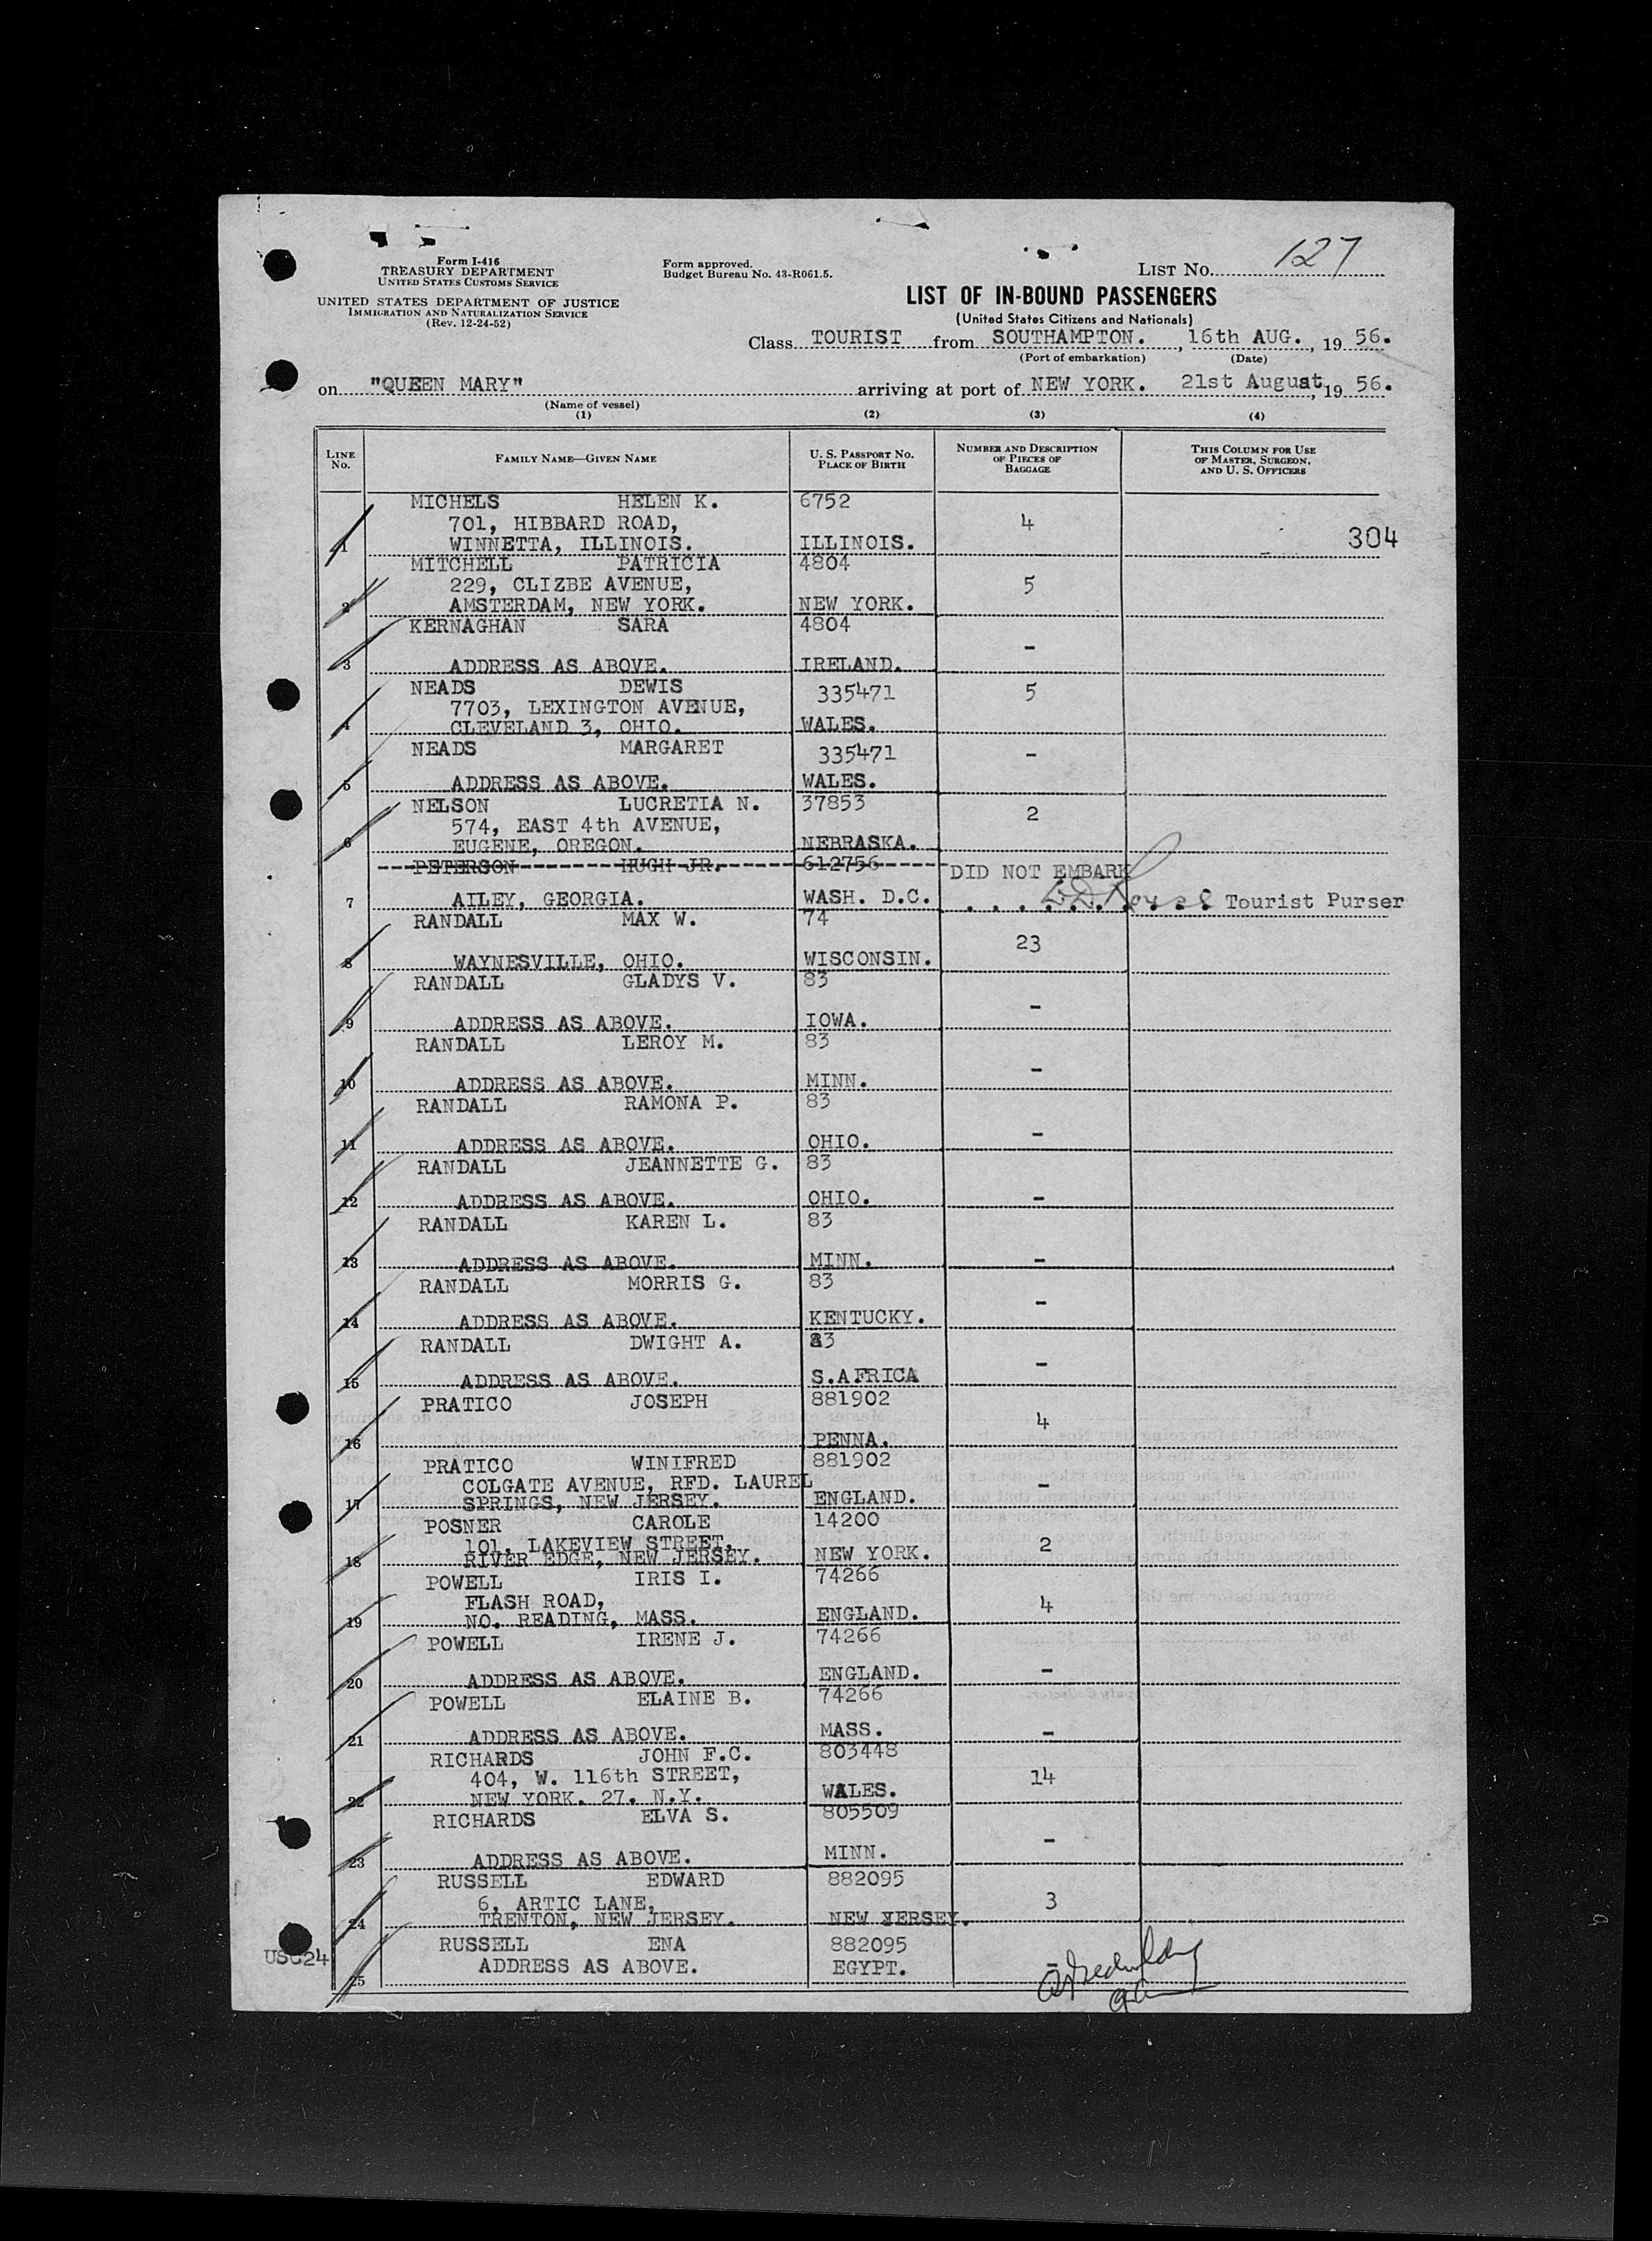 Form I-416
TREASURY DEPARTMENT
UNITED STATES CUSTOMS SERVICE
UNITED STATES DEPARTMENT OF JUSTICE
IMMIGRATION AND NATURALIZATION SERVICE
(Rev. 12-24-52)
Form approved.
Budget Bureau No. 43-R061.5.
LIST No. 127
LIST OF IN-BOUND PASSENGERS
(United States Citizens and Nationals)
Class TOURIST from SOUTHAMPTON. , 16th AUG. , 19 56.
(Port of embarkation) (Date)
on "QUEEN MARY" arriving at port of NEW YORK. 21st August, 19 56.
(Name of vessel)
(1) (2) (3) (4)
LINE No. FAMILY NAME—GIVEN NAME U. S. PASSPORT No. PLACE OF BIRTH NUMBER AND DESCRIPTION OF PIECES OF BAGGAGE THIS COLUMN FOR USE OF MASTER, SURGEON, AND U. S. OFFICERS
MICHELS HELEN K. 6752
701, HIBBARD ROAD, 4
1 WINNETTA, ILLINOIS. ILLINOIS. 304
MITCHELL PATRICIA 4804
229, CLIZBE AVENUE, 5
2 AMSTERDAM, NEW YORK. NEW YORK.
KERNAGHAN SARA 4804
-
3 ADDRESS AS ABOVE. IRELAND.
NEADS DEWIS 335471 5
7703, LEXINGTON AVENUE,
4 CLEVELAND 3, OHIO. WALES.
NEADS MARGARET 335471 -
5 ADDRESS AS ABOVE. WALES.
NELSON LUCRETIA N. 37853
574, EAST 4th AVENUE, 2
6 EUGENE, OREGON. NEBRASKA.
PETERSON HUGH JR. 612756 DID NOT EMBARK
7 AILEY, GEORGIA. WASH. D.C. Tourist Purser
RANDALL MAX W. 74
23
8 WAYNESVILLE, OHIO. WISCONSIN.
RANDALL GLADYS V. 83
-
9 ADDRESS AS ABOVE. IOWA.
RANDALL LEROY M. 83
-
10 ADDRESS AS ABOVE. MINN.
RANDALL RAMONA P. 83
-
11 ADDRESS AS ABOVE. OHIO.
RANDALL JEANNETTE G. 83
12 ADDRESS AS ABOVE. OHIO. -
RANDALL KAREN L. 83
13 ADDRESS AS ABOVE. MINN. -
RANDALL MORRIS G. 83
-
14 ADDRESS AS ABOVE. KENTUCKY.
RANDALL DWIGHT A. 83
-
15 ADDRESS AS ABOVE. S.AFRICA
PRATICO JOSEPH 881902
4
16 PENNA.
PRATICO WINIFRED 881902
COLGATE AVENUE, RFD. LAUREL -
17 SPRINGS, NEW JERSEY. ENGLAND.
POSNER CAROLE 14200
101, LAKEVIEW STREET, 2
18 RIVER EDGE, NEW JERSEY. NEW YORK.
POWELL IRIS I. 74266
FLASH ROAD, 4
19 NO. READING, MASS. ENGLAND.
POWELL IRENE J. 74266
-
20 ADDRESS AS ABOVE. ENGLAND.
POWELL ELAINE B. 74266
21 ADDRESS AS ABOVE. MASS. -
RICHARDS JOHN F.C. 803448
404, W. 116th STREET, 14
22 NEW YORK. 27. N.Y. WALES.
RICHARDS ELVA S. 805509
-
23 ADDRESS AS ABOVE. MINN.
RUSSELL EDWARD 882095
6, ARTIC LANE, 3
24 TRENTON, NEW JERSEY. NEW JERSEY.
RUSSELL ENA 882095
USC24 ADDRESS AS ABOVE. EGYPT. -
25